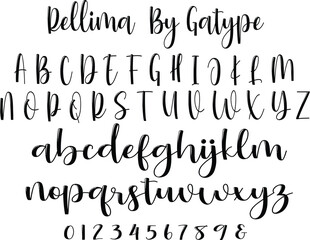 Dellima By Gatype
A B C D E F G H I J K L M
N O P Q R S T U V W X Y Z
abcdefghijklm
nopqrstuvwxyz
0 1 2 3 4 5 6 7 8 9 &